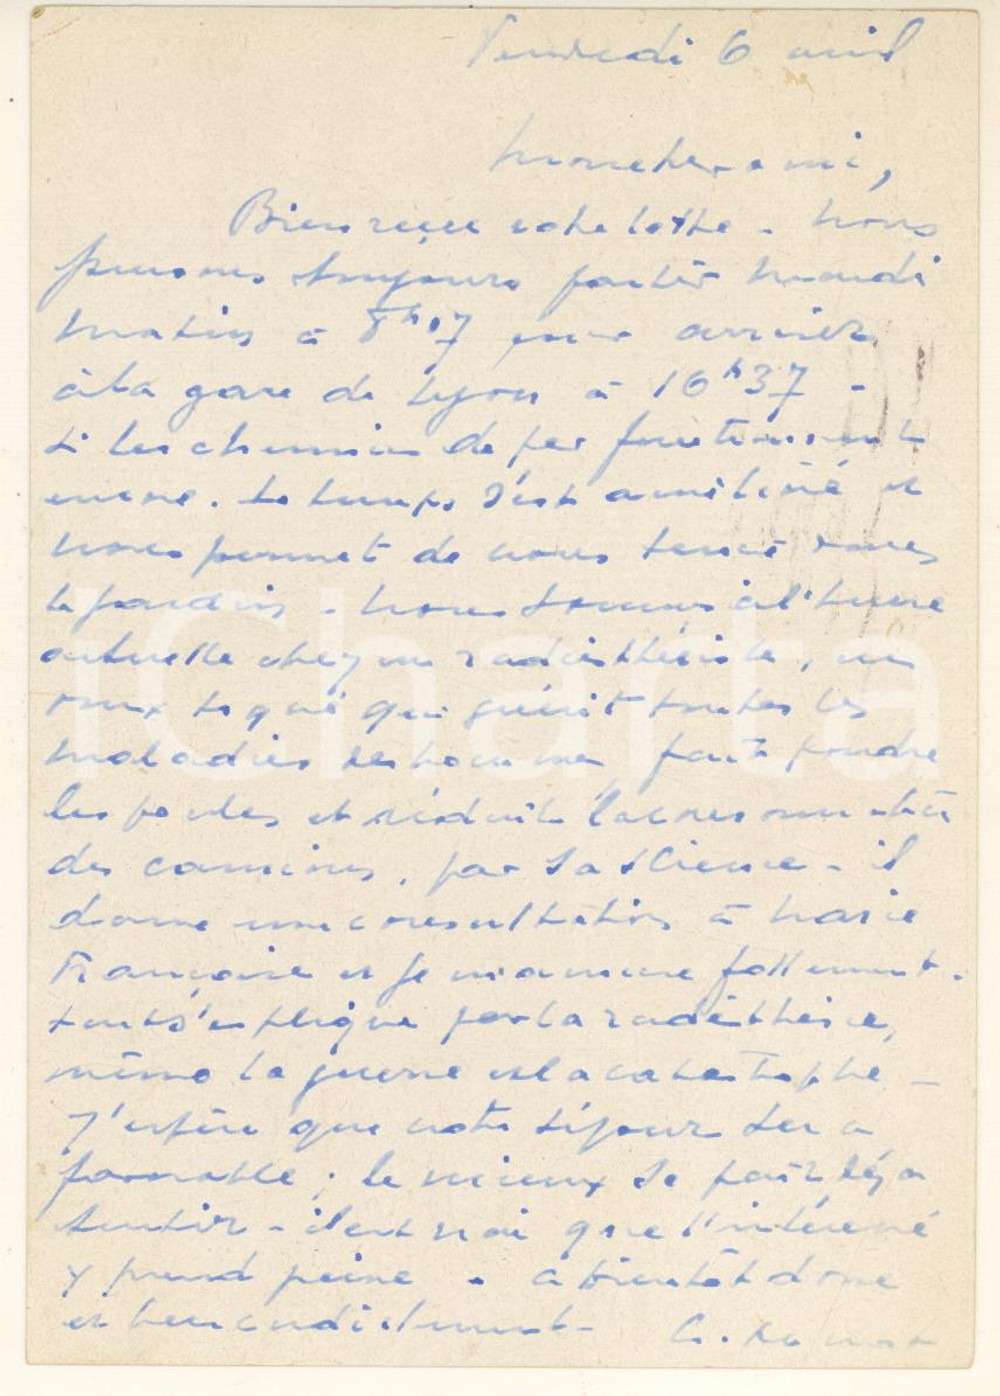 Vendredi 6 avril
Mon cher ami,
Bien reçu votre lettre. Nous
pensons toujours partir mardi
matin à 8h07 pour arriver
à la gare de Lyon à 16h37 -
si les chemins de fer fonctionnent
encore. Le temps s'est amélioré et
nous permet de nous tenir dans
le jardin. Nous sommes à l'heure
actuelle chez un radiesthésiste, un
toqué qui guérit toutes les
maladies des hommes, fait pondre
les poules et réduit la consommation
des camions, par sa science. il
donne une consultation à Marie
Françoise et je m'amuse follement.
tout s'explique par la radiesthésie,
même la guerre et la catastrophe -
J'espère que votre séjour sera
favorable ; le mieux se fait déjà
sentir - il est vrai que l'intéressé
y prend peine. à bientôt donc
et bien cordialement - G.
iCharta